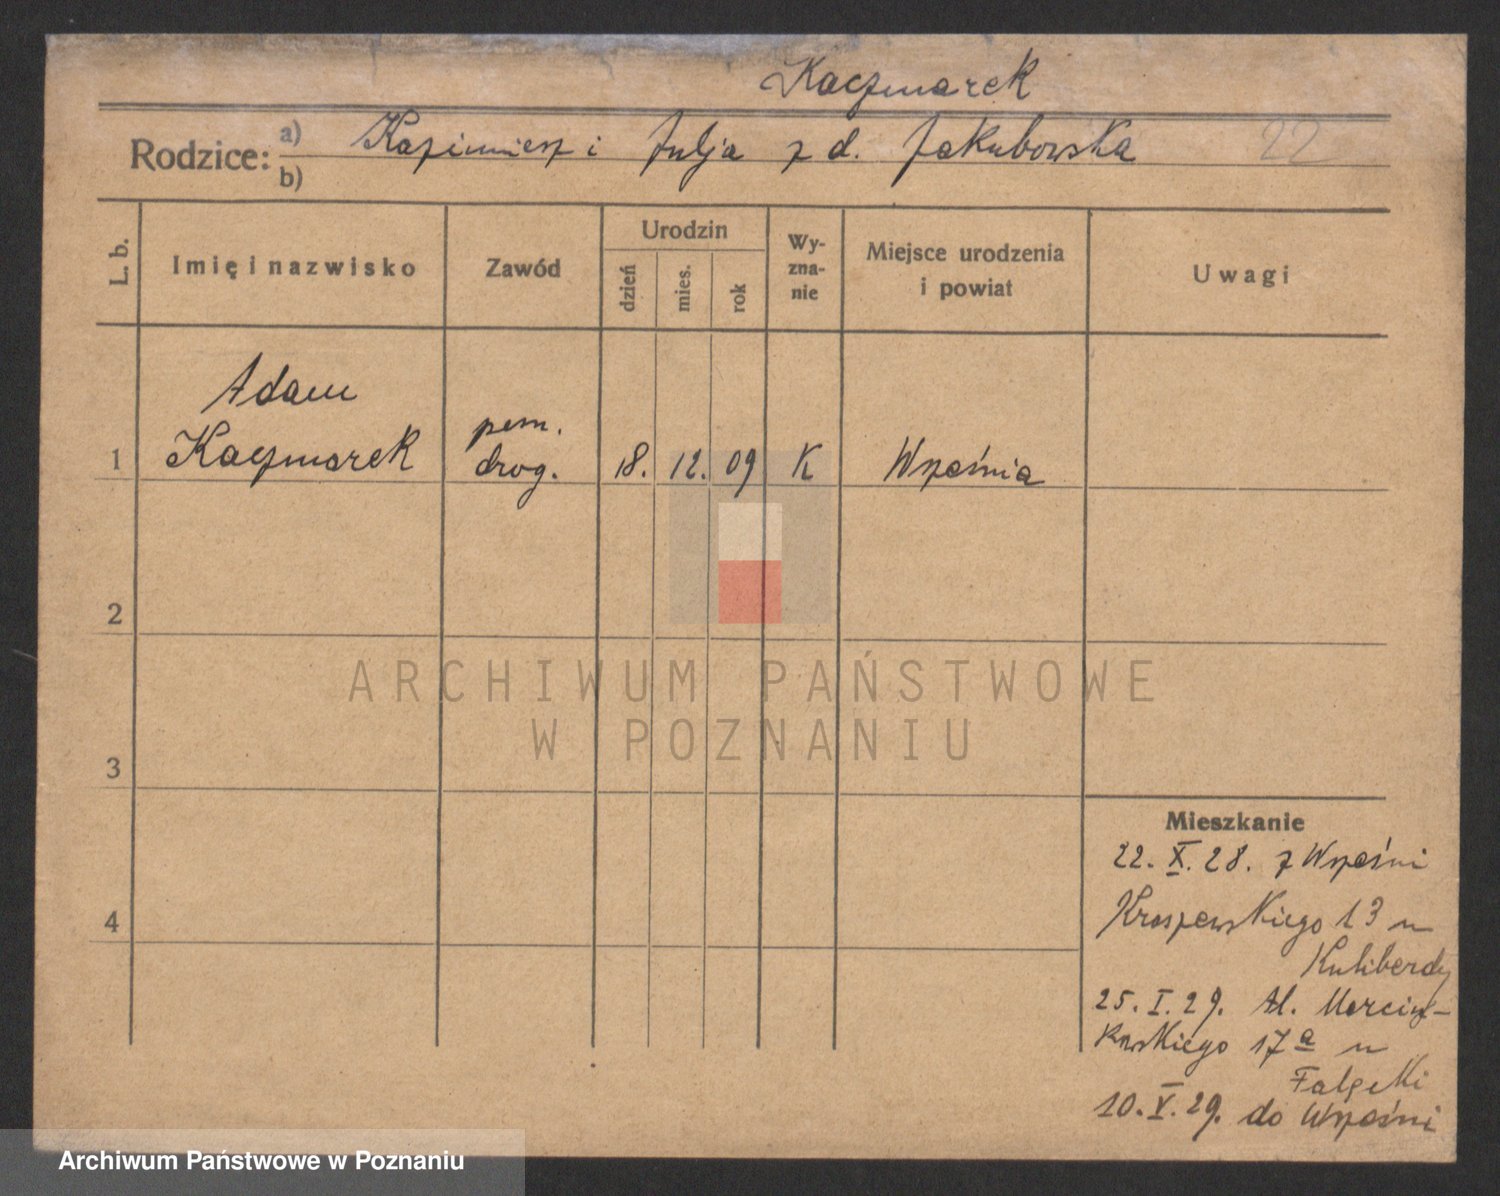 Kaczmarek
Rodzice: a) Kazimierz i Julja z d. Jakubowska 22
b)
L. b. Imię i nazwisko Zawód Urodzin dzień mies. rok Wy-zna-nie Miejsce urodzenia i powiat Uwagi
Adam
1 Kaczmarek pom. drog. 18. 12. 09 K Września
2
3
4
Mieszkanie
22. X. 28. z Wrześni
Kraszewskiego 13 u
Kuliberdy
25. I. 29. Al. Marcin-
kowskiego 17a u
10. V. 29. do Wrześni
ARCHIWUM PAŃSTWOWE
W POZNANIU
Archiwum Państwowe w Poznaniu